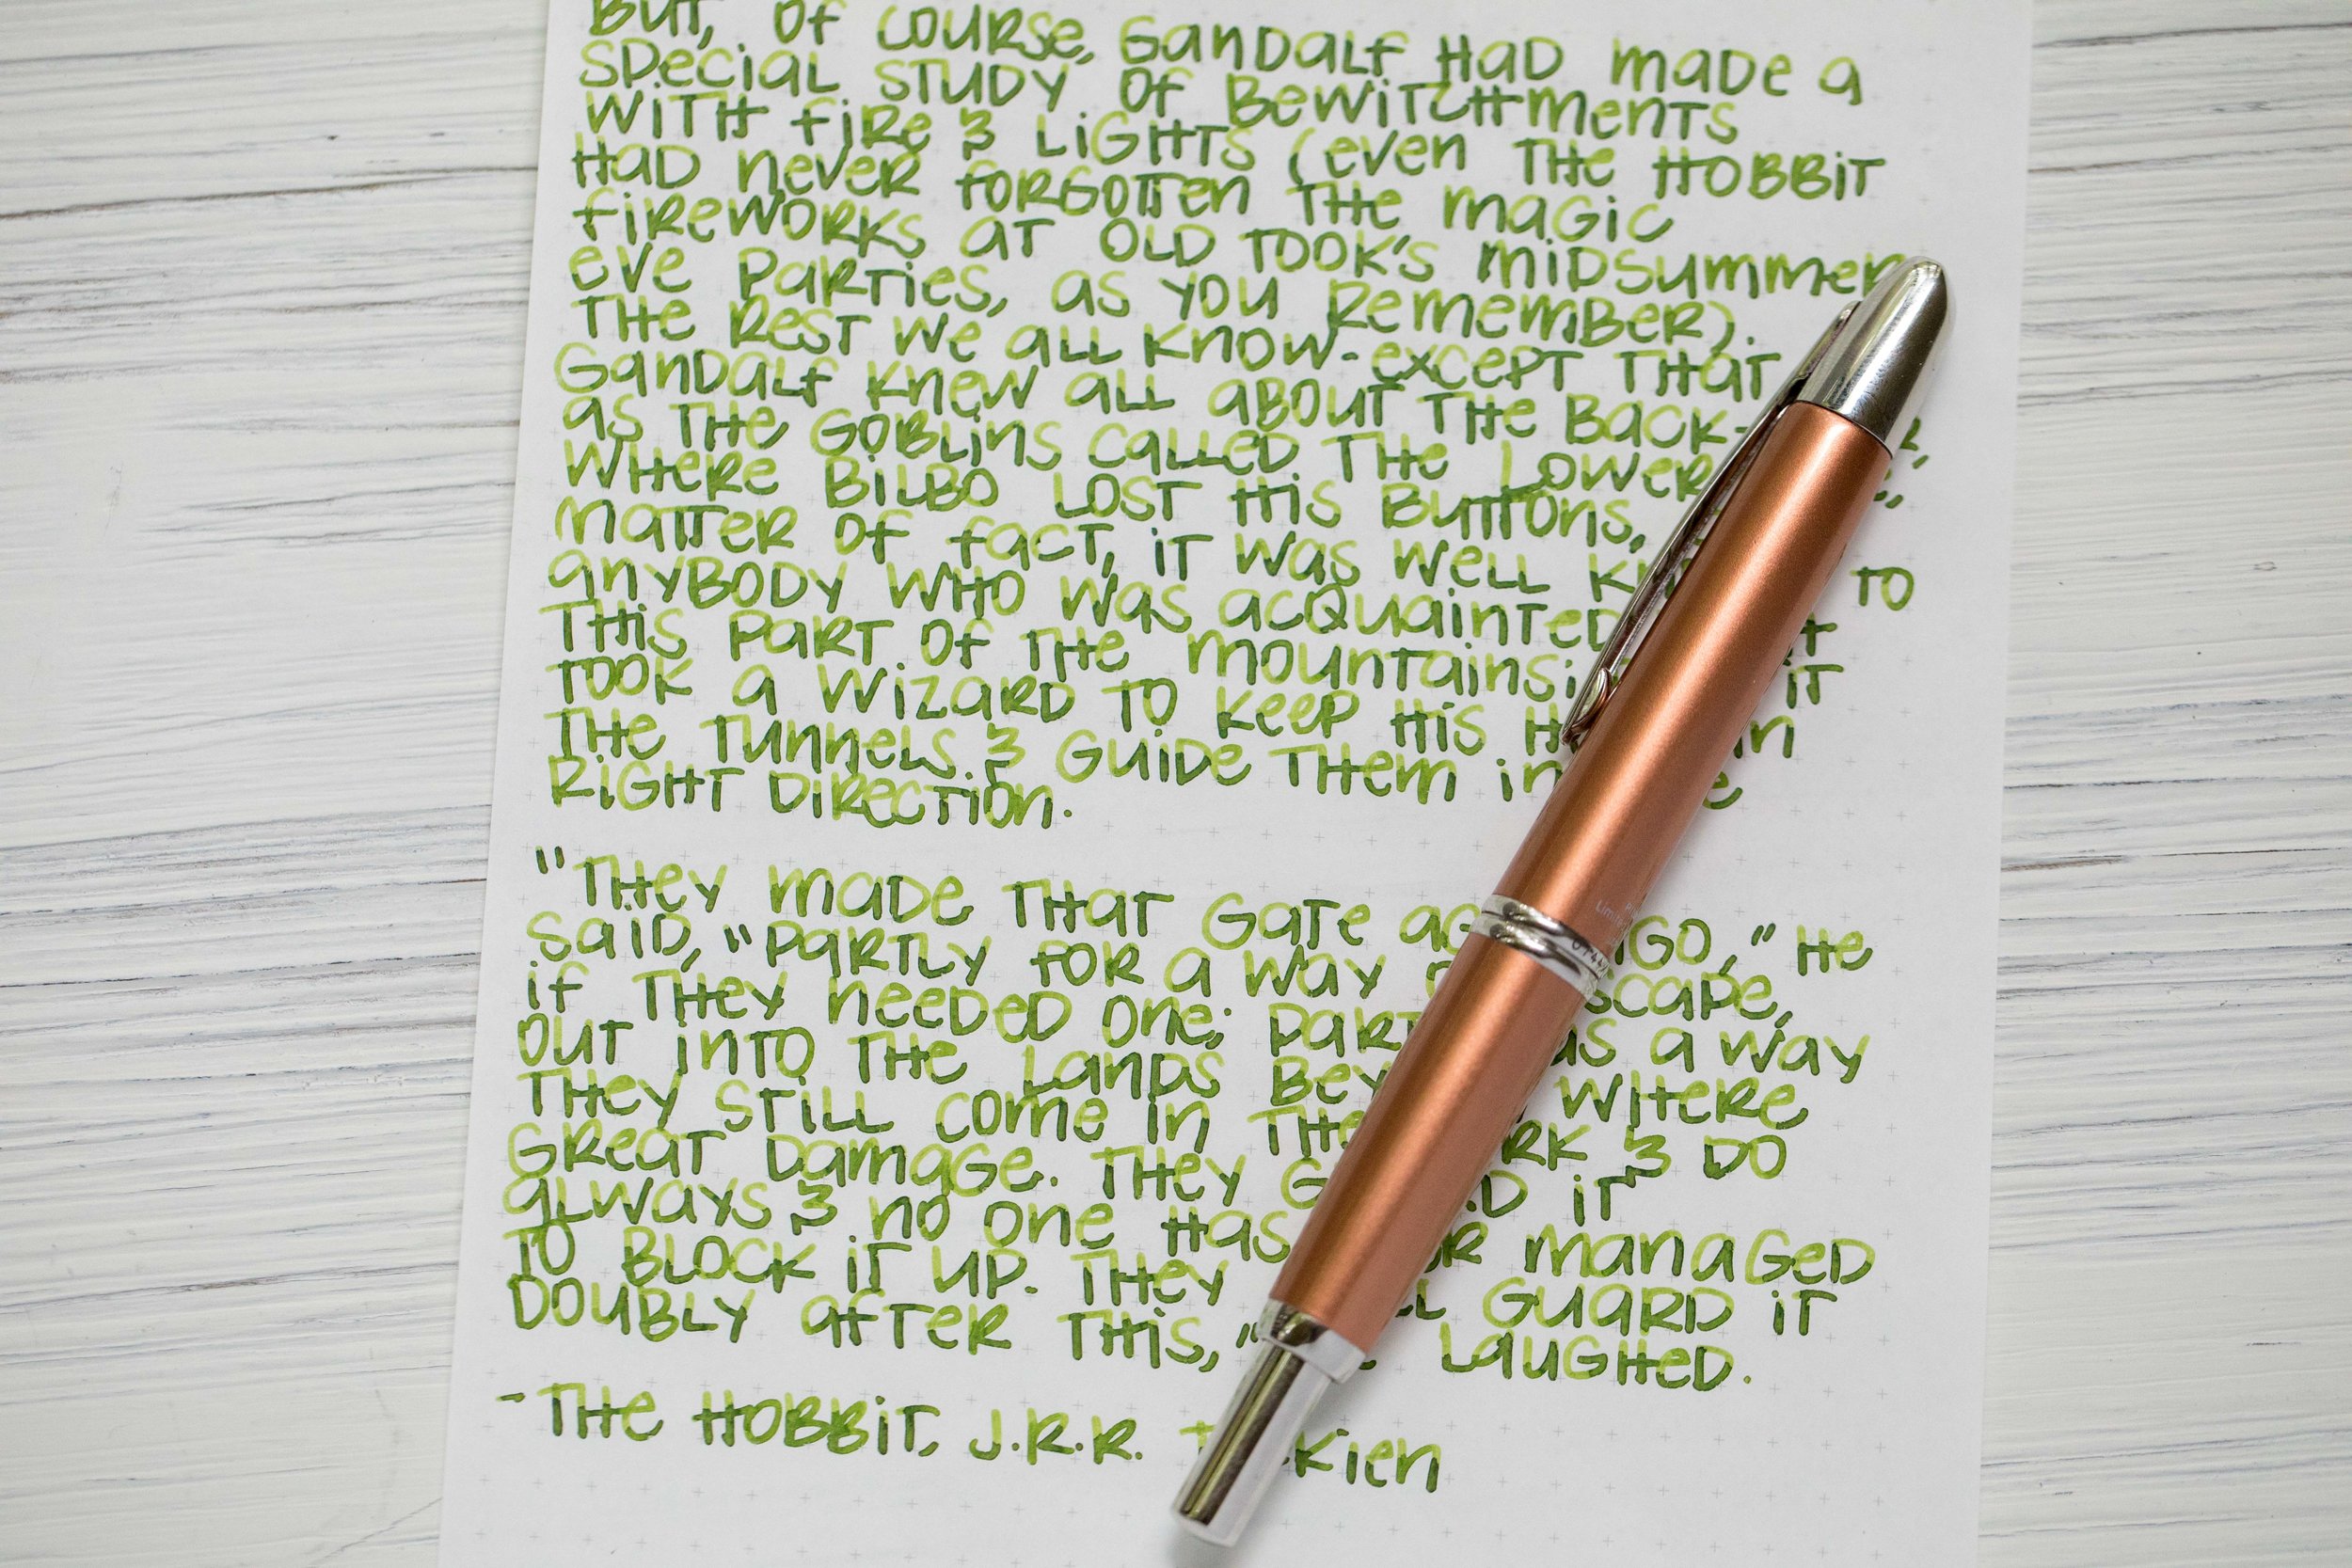 But, of course, Gandalf had made a
special study of bewitchments
with fire & lights (even the hobbit
had never forgotten the magic
fireworks at Old Took's midsummer
eve parties, as you remember).
The rest we all know - except that
Gandalf knew all about the back-
as the goblins called the lower
where Bilbo lost his buttons,
matter of fact, it was well to
anybody who was acquainted
this part of the it
took a wizard to keep his in
the tunnels & guide them in
right direction.
"They made that gate " he
said, "partly for a way
if they needed one; as a way
out into the lands where
they still come in the & do
great damage. They it
always & no one has managed
to block it up. They guard it
doubly after this," laughed.
- The Hobbit, J.R.R.